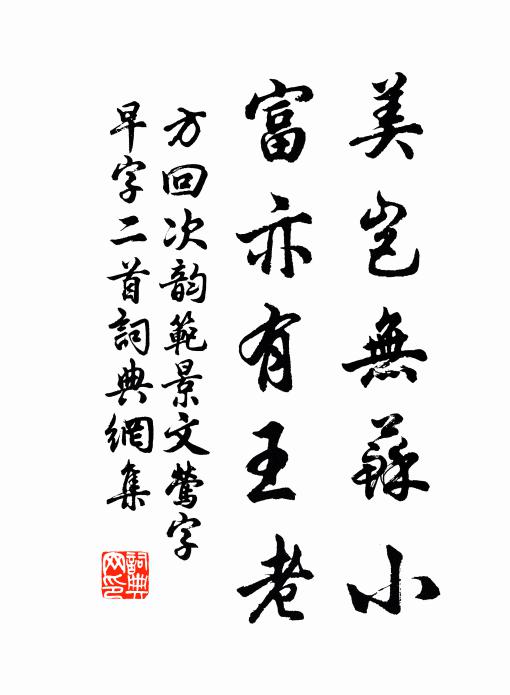 美豈無蘇小
富亦有王老
方回次韵範景文鶯字
早字二首詞典網集
詞典網印